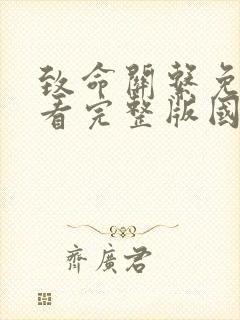 致命關繫免
看完整版國
齊廣君